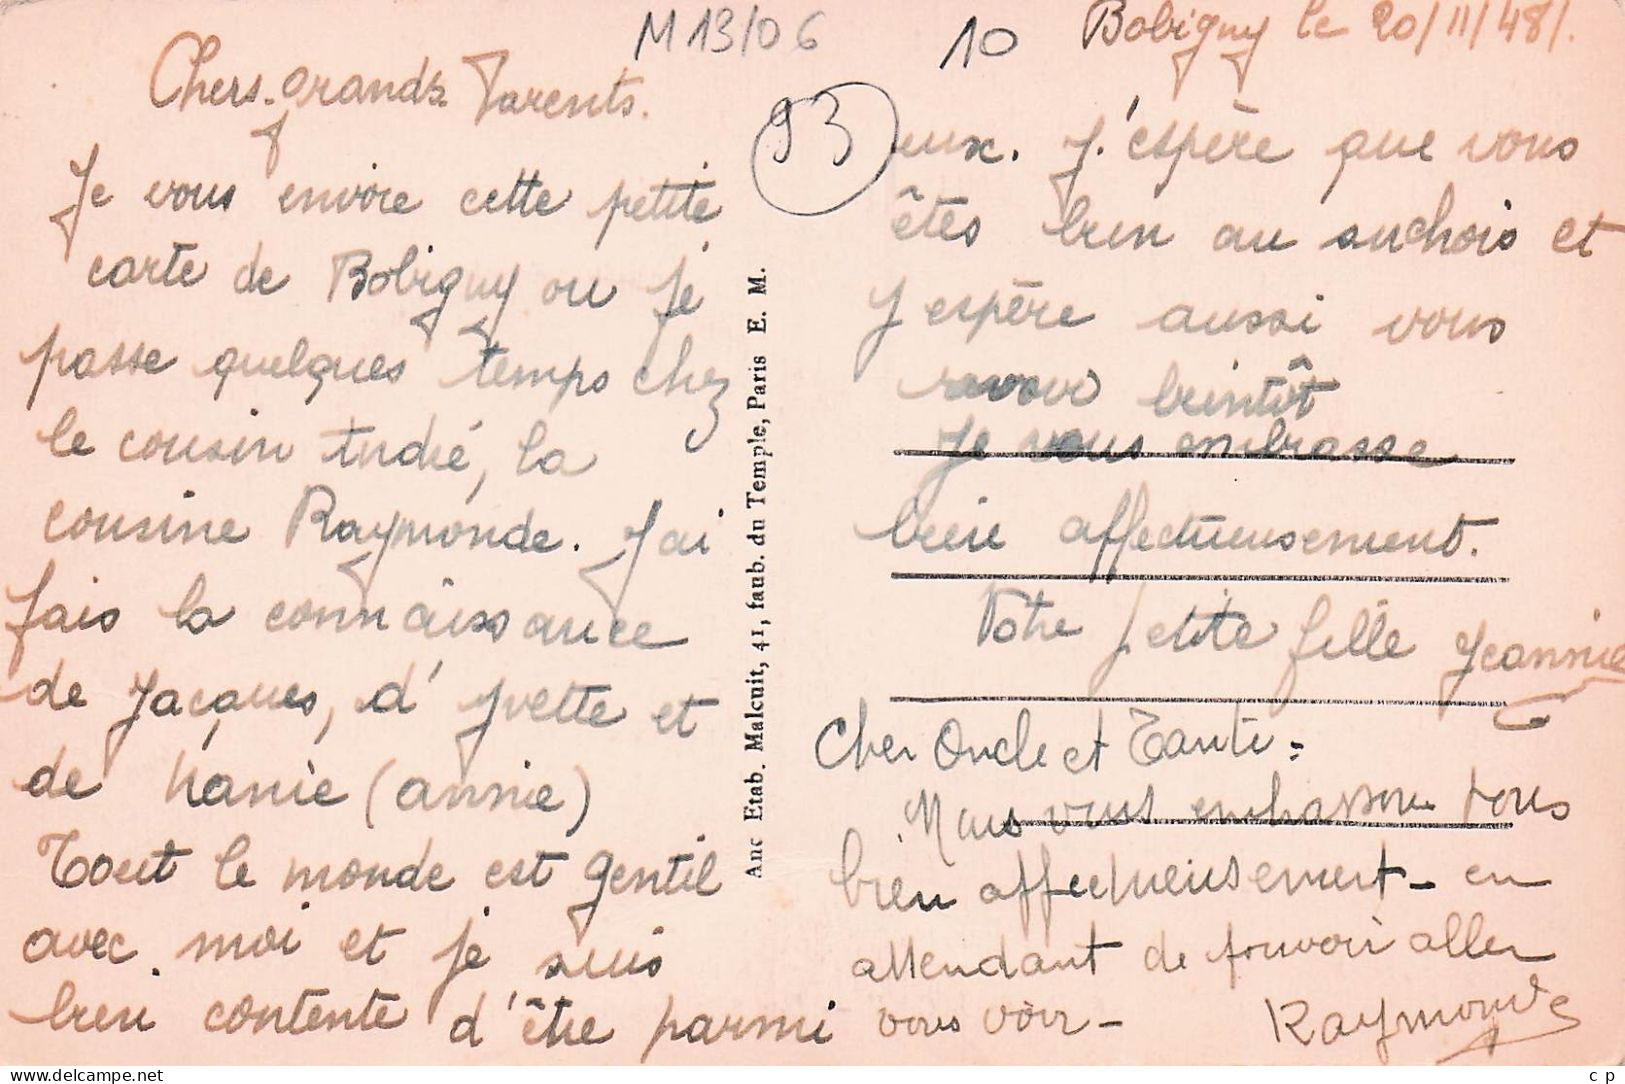 M13/06
10
Bobigny le 20/11/48/.
93
Chers grands Parents.
Je vous envoie cette petite
carte de Bobigny ou je
passe quelques temps chez
le cousin André, la
cousine Raymonde. J'ai
fais la connaissance
de Jacques, d'Yvette et
de Nanie (annie)
Tout le monde est gentil
avec moi et je suis
bien contente d'être parmi
eux. J'espère que vous
êtes bien au suchois et
J espère aussi vous
revoir bientôt
Je vous embrasse
bien affectueusement.
Votre petite fille Jeannie
Cher Oncle et Tante :
Nous vous embrassons tous
bien affectueusement - en
attendant de pouvoir aller
vous voir -
Raymonde
Anc Etab. Malcuit, 41, faub. du Temple, Paris E. M.
c p